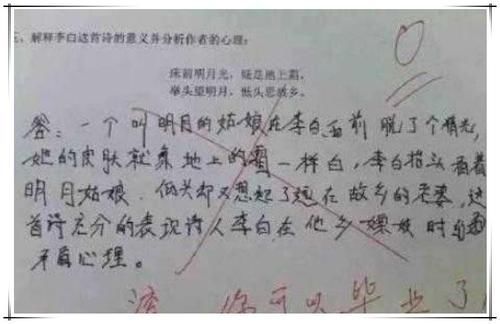 三、解释李白这首诗的意义并分析作者的心理:
床前明月光，疑是地上霜，
举头望明月，低头思故乡。
答：一个叫明月的姑娘在李白面前脱了个精光，
她的皮肤就象地上的霜一样白，李白抬头看着
明月姑娘．低头却又想起了远在故乡的老婆，这
首诗充分的表现诗人李白在他乡嫖妓时的
矛盾心理。
你可以毕业了